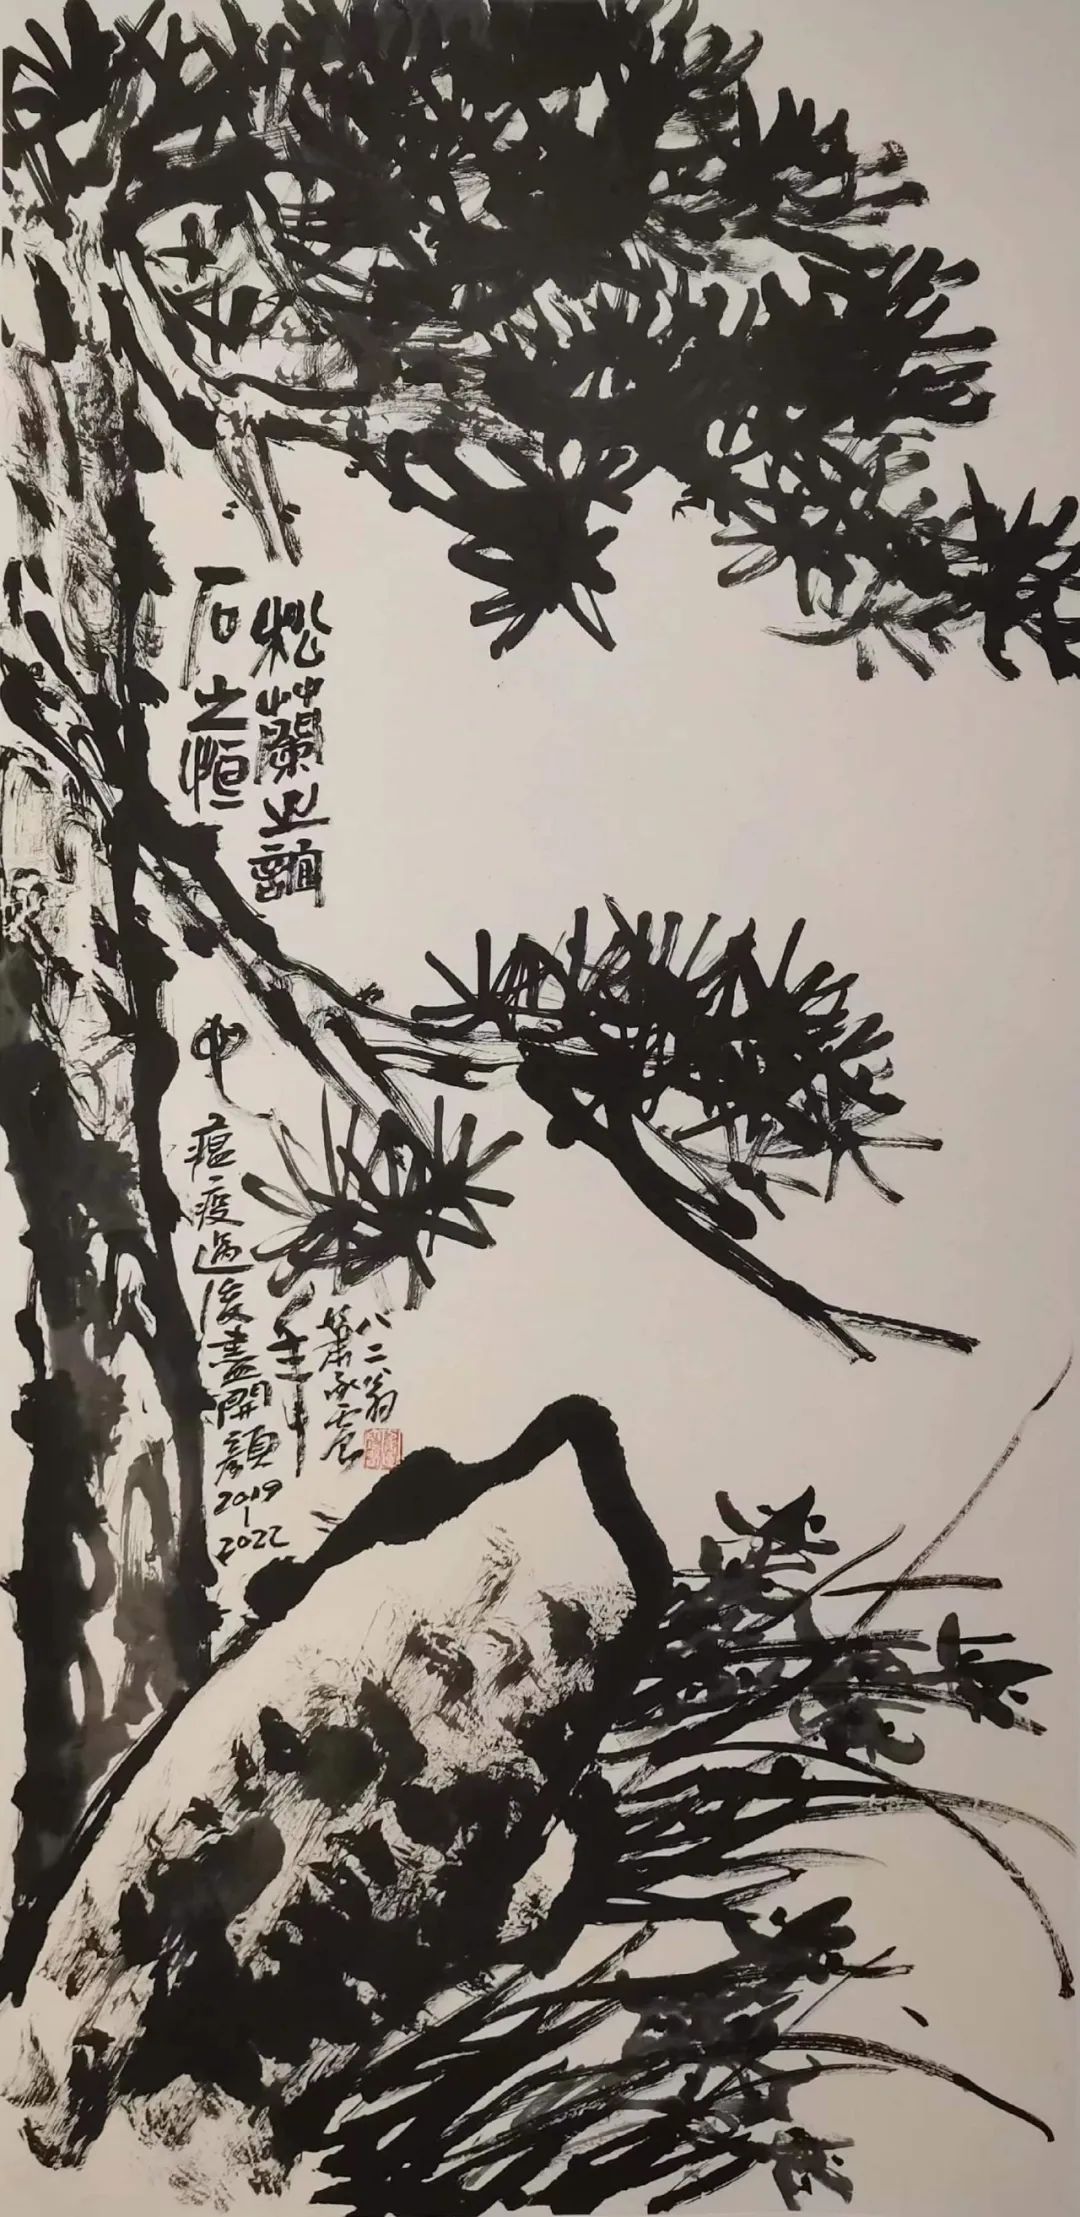 松蘭之誼
石之恒
瘟疫過後盡開顏
2019－
2022
年
八二翁
蕭承震